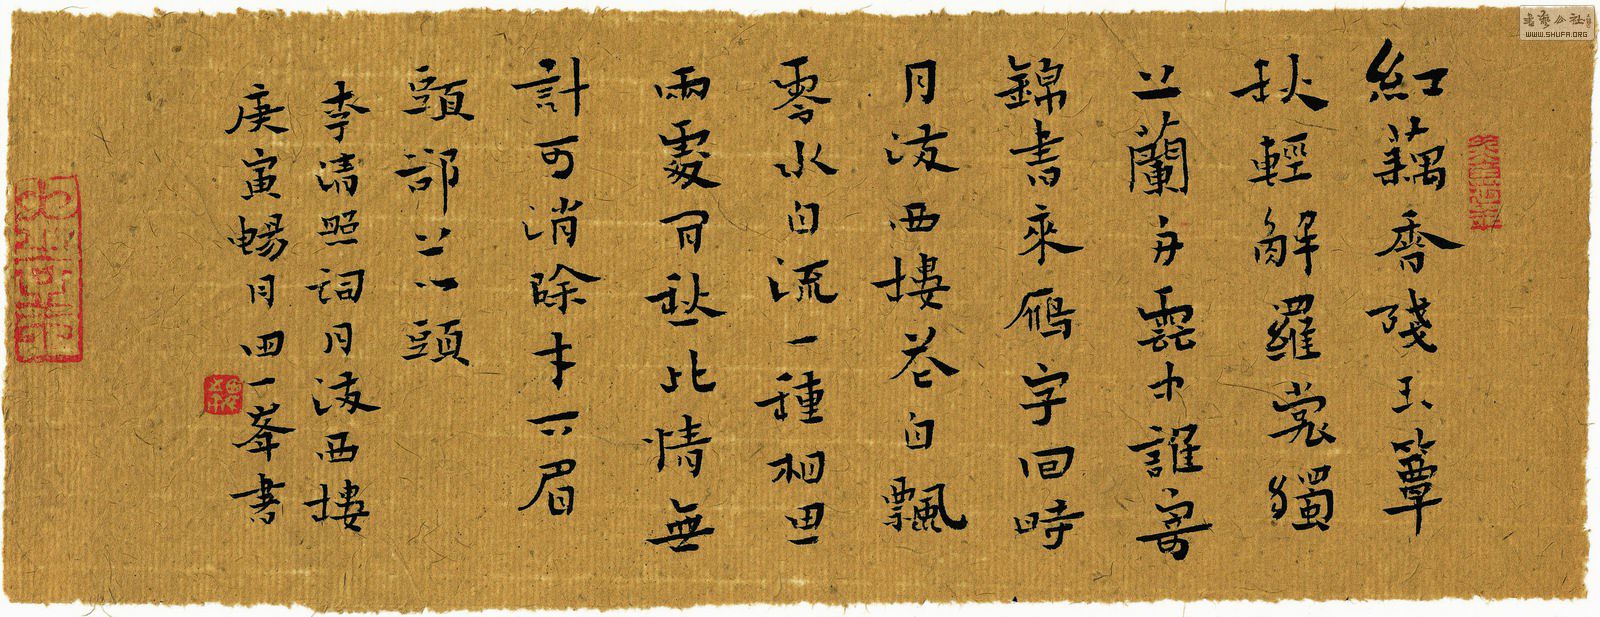 紅藕香殘玉簟
秋輕解羅裳獨
上蘭舟雲中誰寄
錦書來鴈字回時
月滿西樓花自飄
零水自流一種相思
兩處閒愁此情無
計可消除才下眉
頭卻上心頭
李清照詞月滿西樓
庚寅暢月四一峯書
書藝公社
WWW.SHUFA.ORG